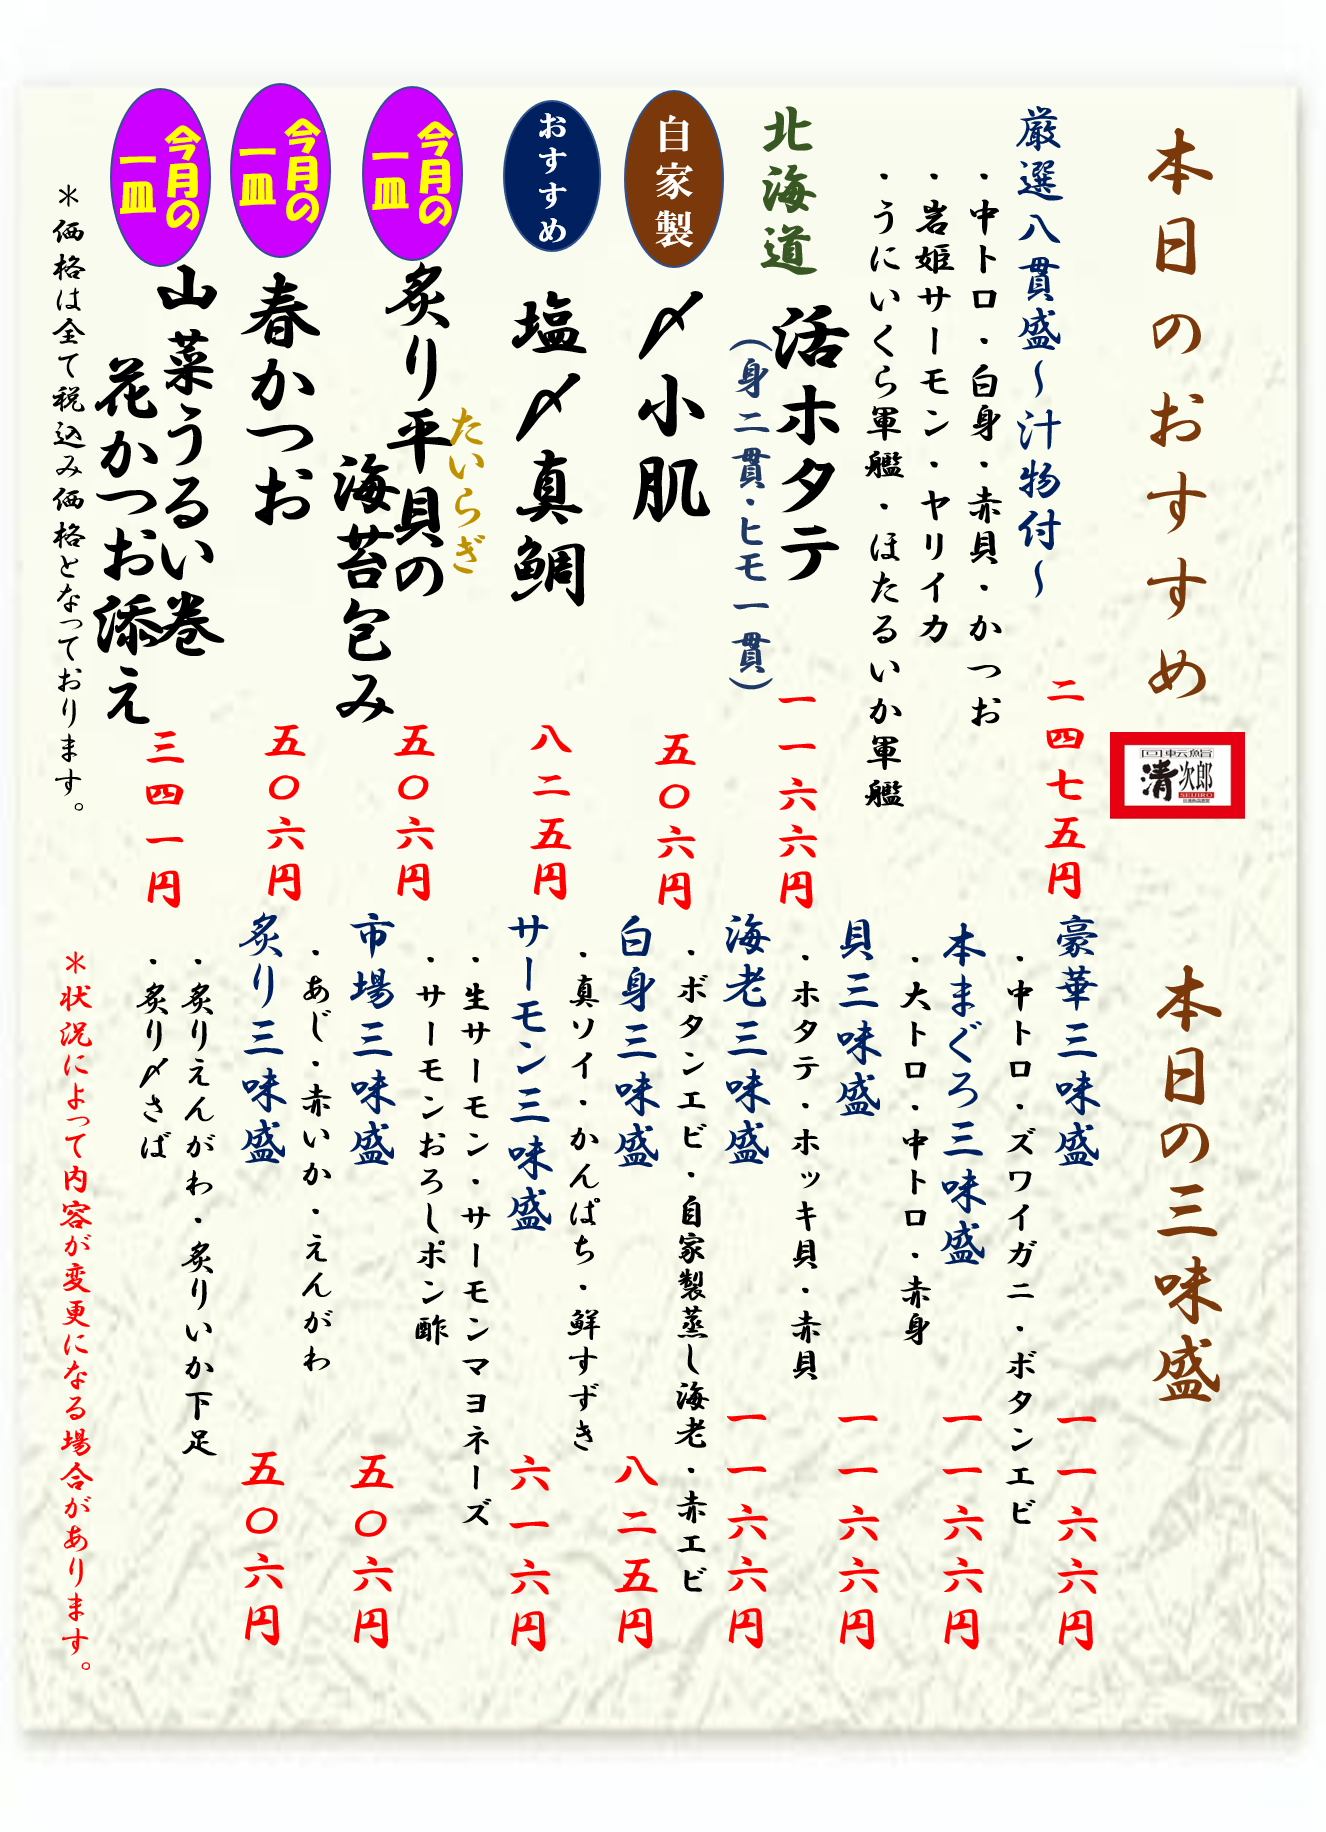 本日のおすすめ
回転鮨
清次郎
SEIJIRO
厳選八貫盛～汁物付～
二四七五円
・中トロ・白身・赤貝・かつお
・岩姫サーモン・ヤリイカ
・うにいくら軍艦・ほたるいか軍艦
北海道
活ホタテ
(身二貫・ヒモ一貫)
一一六六円
自家製
〆小肌
五〇六円
おすすめ
塩〆真鯛
八二五円
今月の
一皿
たいらぎ
炙り平貝の
海苔包み
五〇六円
今月の
一皿
春かつお
五〇六円
今月の
一皿
山菜うるい巻
花かつお添え
三四一円
＊価格は全て税込み価格となっております。
本日の三味盛
豪華三味盛
一一六六円
・中トロ・ズワイガニ・ボタンエビ
本まぐろ三味盛
一一六六円
・大トロ・中トロ・赤身
貝三味盛
一一六六円
・ホタテ・ホッキ貝・赤貝
海老三味盛
一一六六円
・ボタンエビ・自家製蒸し海老・赤エビ
白身三味盛
八二五円
・真ソイ・かんぱち・鮮すずき
サーモン三味盛
六一六円
・生サーモン・サーモンマヨネーズ
・サーモンおろしポン酢
市場三味盛
五〇六円
・あじ・赤いか・えんがわ
炙り三味盛
五〇六円
・炙りえんがわ・炙りいか下足
・炙り〆さば
＊状況によって内容が変更になる場合があります。